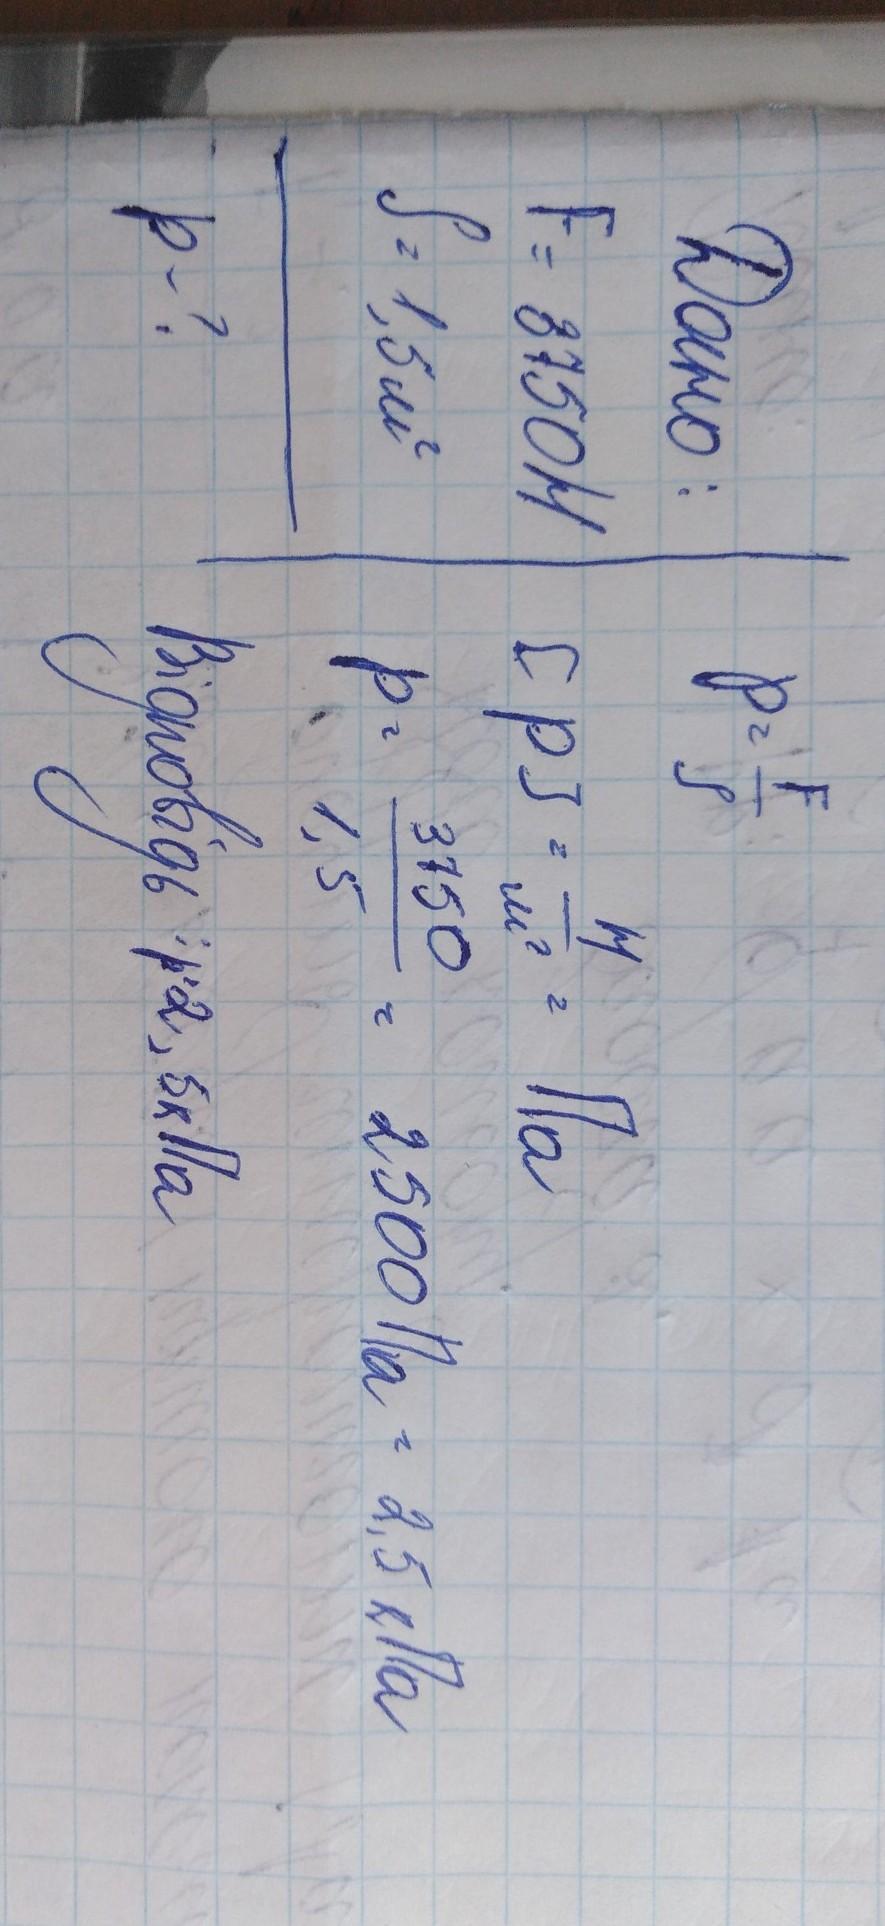 Дано:
F = 3750Н
S = 1,5м²
p - ?
p = F/S
[p] = Н/м² = Па
p = 3750/1,5 = 2500Па = 2,5кПа
Відповідь: p=2,5кПа